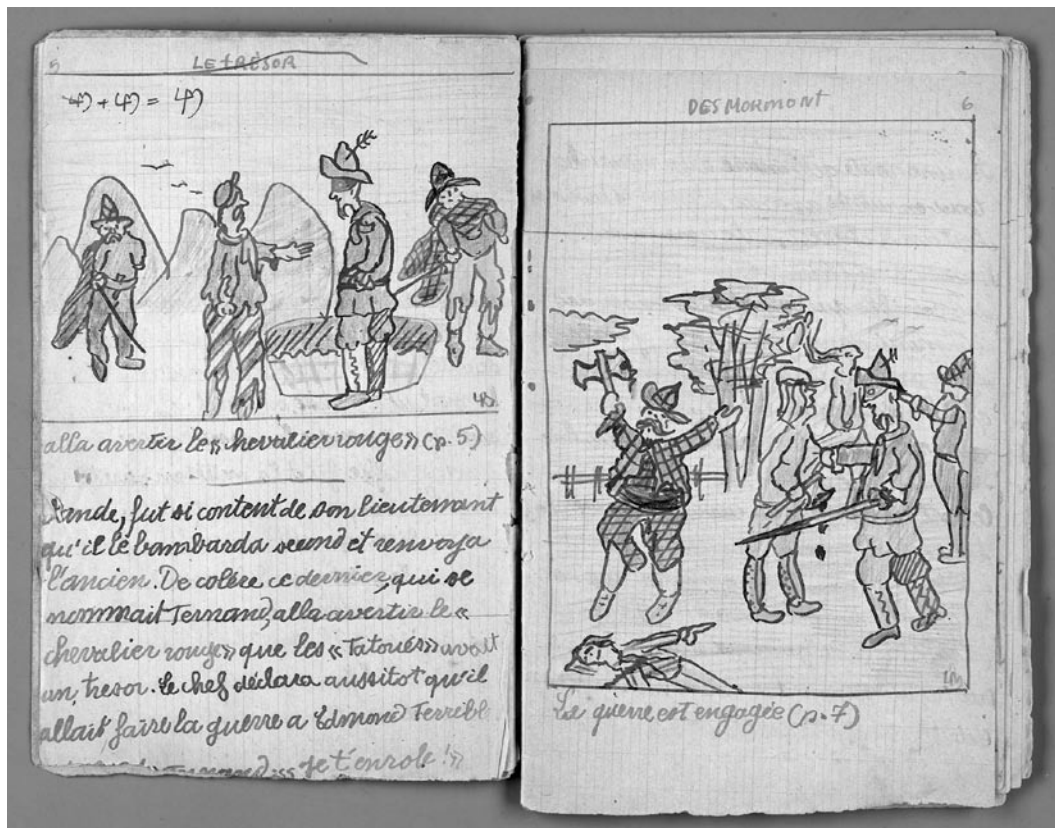 5
LE TRÉSOR
alla avertir le « chevalier rouge » (p. 5)
bande, fut si content de son lieutenant
qu'il le bambarda second et renvoya
l'ancien. De colère ce dernier, qui se
nommait Ternand, alla avertir le «
chevalier rouge » que les « Tatoués » avait
un tresor. Le chef déclara aussitot qu'il
allait faire la guerre a Edmond Terrible
je t'enrole ! »
DES MORMONT
6
La guerre est engagée (p. 7)